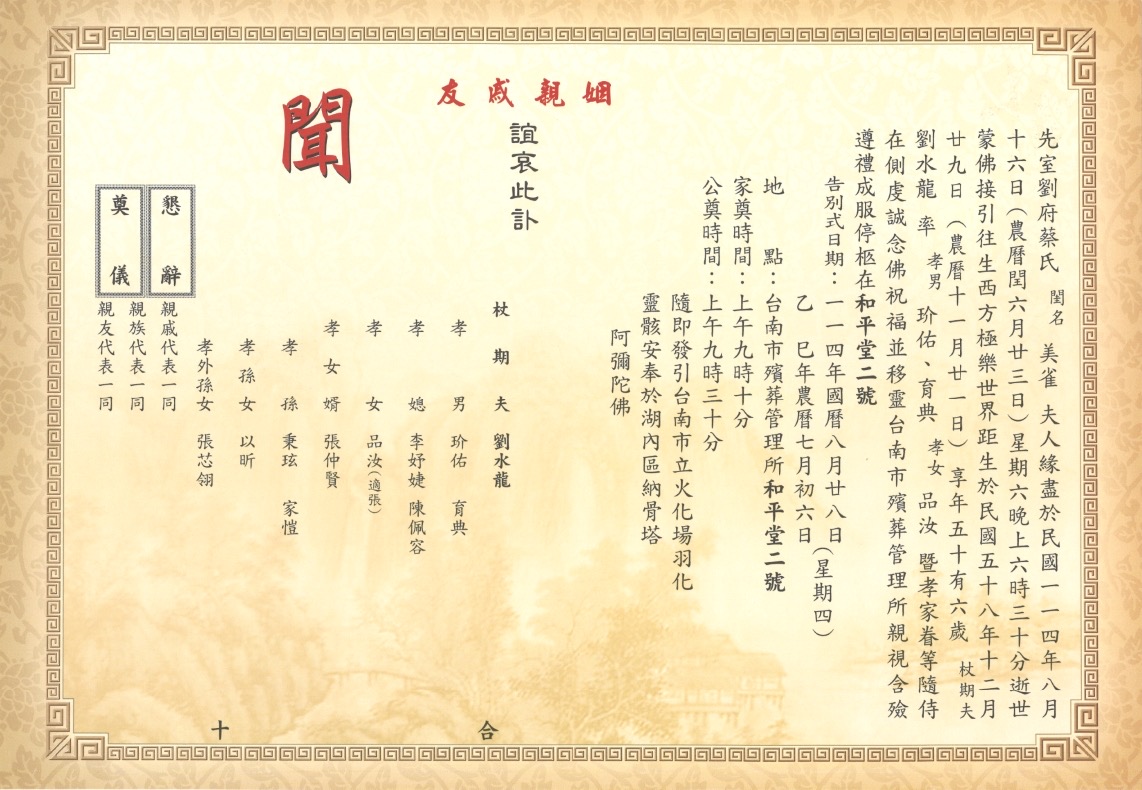 先室劉府蔡氏 閨名 美雀 夫人緣盡於民國一一四年八月
十六日（農曆閏六月廿三日）星期六晚上六時三十分逝世
蒙佛接引往生西方極樂世界距生於民國五十八年十二月
廿九日（農曆十一月廿一日）享年五十有六歲 杖期夫
劉水龍 率 孝男 玠佑、育典 孝女 品汝 暨孝家眷等隨侍
在側虔誠念佛祝福並移靈台南市殯葬管理所親視含殮
遵禮成服停柩在和平堂二號
告別式日期：一一四年國曆八月廿八日（星期四）
乙巳年農曆七月初六日
地點：台南市殯葬管理所和平堂二號
家奠時間：上午九時十分
公奠時間：上午九時三十分
隨即發引台南市立火化場羽化
靈骸安奉於湖內區納骨塔
阿彌陀佛
姻親戚友
誼哀此訃
聞
杖期夫 劉水龍
孝男 玠佑 育典
孝媳 李妤婕 陳佩容
孝女 品汝（適張）
孝女婿 張仲賢
孝孫 秉玹 家愷
孝孫女 以昕
孝外孫女 張芯翎
懇辭
奠儀
親戚代表一同
親族代表一同
親友代表一同
合十